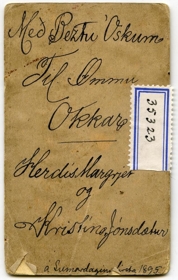 Með Beztu Oskum
Til Ömmu
Okkar
Herdis Margrjet
og
Kristin Jónsdætur
a Sumardaginn 1895
35323